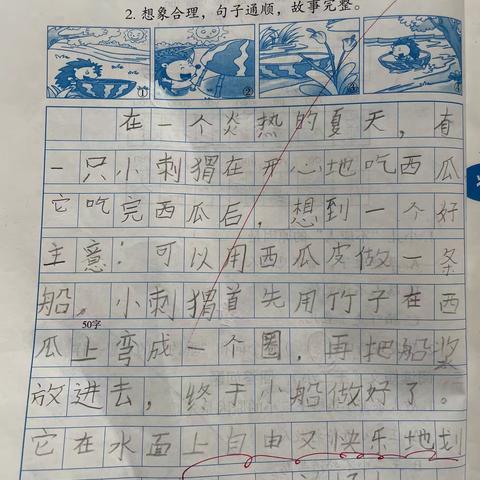 2. 想象合理，句子通顺，故事完整。
① ② ③ ④
在一个炎热的夏天，有
一只小刺猬在开心地吃西瓜
它吃完西瓜后，想到一个好
主意：可以用西瓜皮做一条
船。小刺猬首先用竹子在西
50字
瓜上弯成一个圈，再把船桨
放进去，终于小船做好了。
它在水面上自由又快乐地划